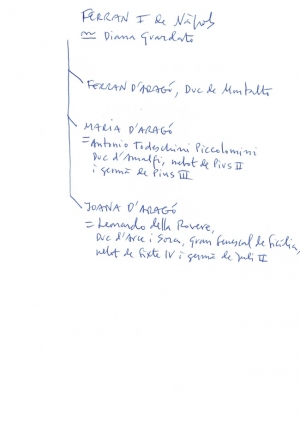 FERRAN I de Nàpols
≅ Diana Guardato
FERRAN D'ARAGÓ, Duc de Montalto
MARIA D'ARAGÓ
= Antonio Todeschini Piccolomini
Duc d'Amalfi, nebot de Pius II
i germà de Pius III
JOANA D'ARAGÓ
= Leonardo della Rovere,
Duc d'Arce i Sora, Gran General de Sicília,
nebot de Sixte IV i germà de Juli II